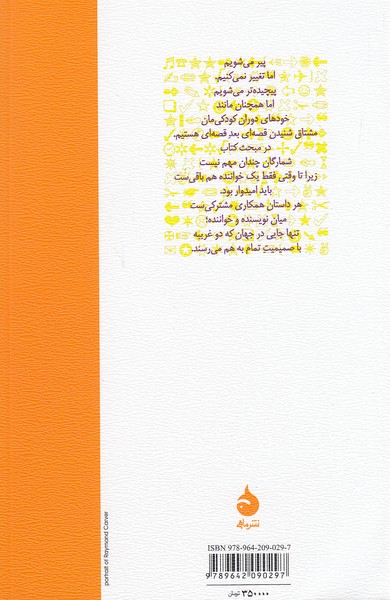 پیر می‌شویم
اما تغییر نمی‌کنیم.
پیچیده‌تر می‌شویم
اما همچنان مانند
خودهای دوران کودکی‌مان
مشتاق شنیدن قصه‌ای بعدِ قصه‌ای هستیم.
در مبحث کتاب
شمارگان چندان مهم نیست
زیرا تا وقتی فقط یک خواننده هم باقی‌ست
باید امیدوار بود.
هر داستان همکاری مشترکی‌ست
میان نویسنده و خواننده؛
تنها جایی در جهان که دو غریبه
با صمیمیتِ تمام به هم می‌رسند.
portrait of Raymond Carver
نشرماهی
ISBN 978-964-209-029-7
9 789642 090297
۳۵۰۰۰۰ تومان